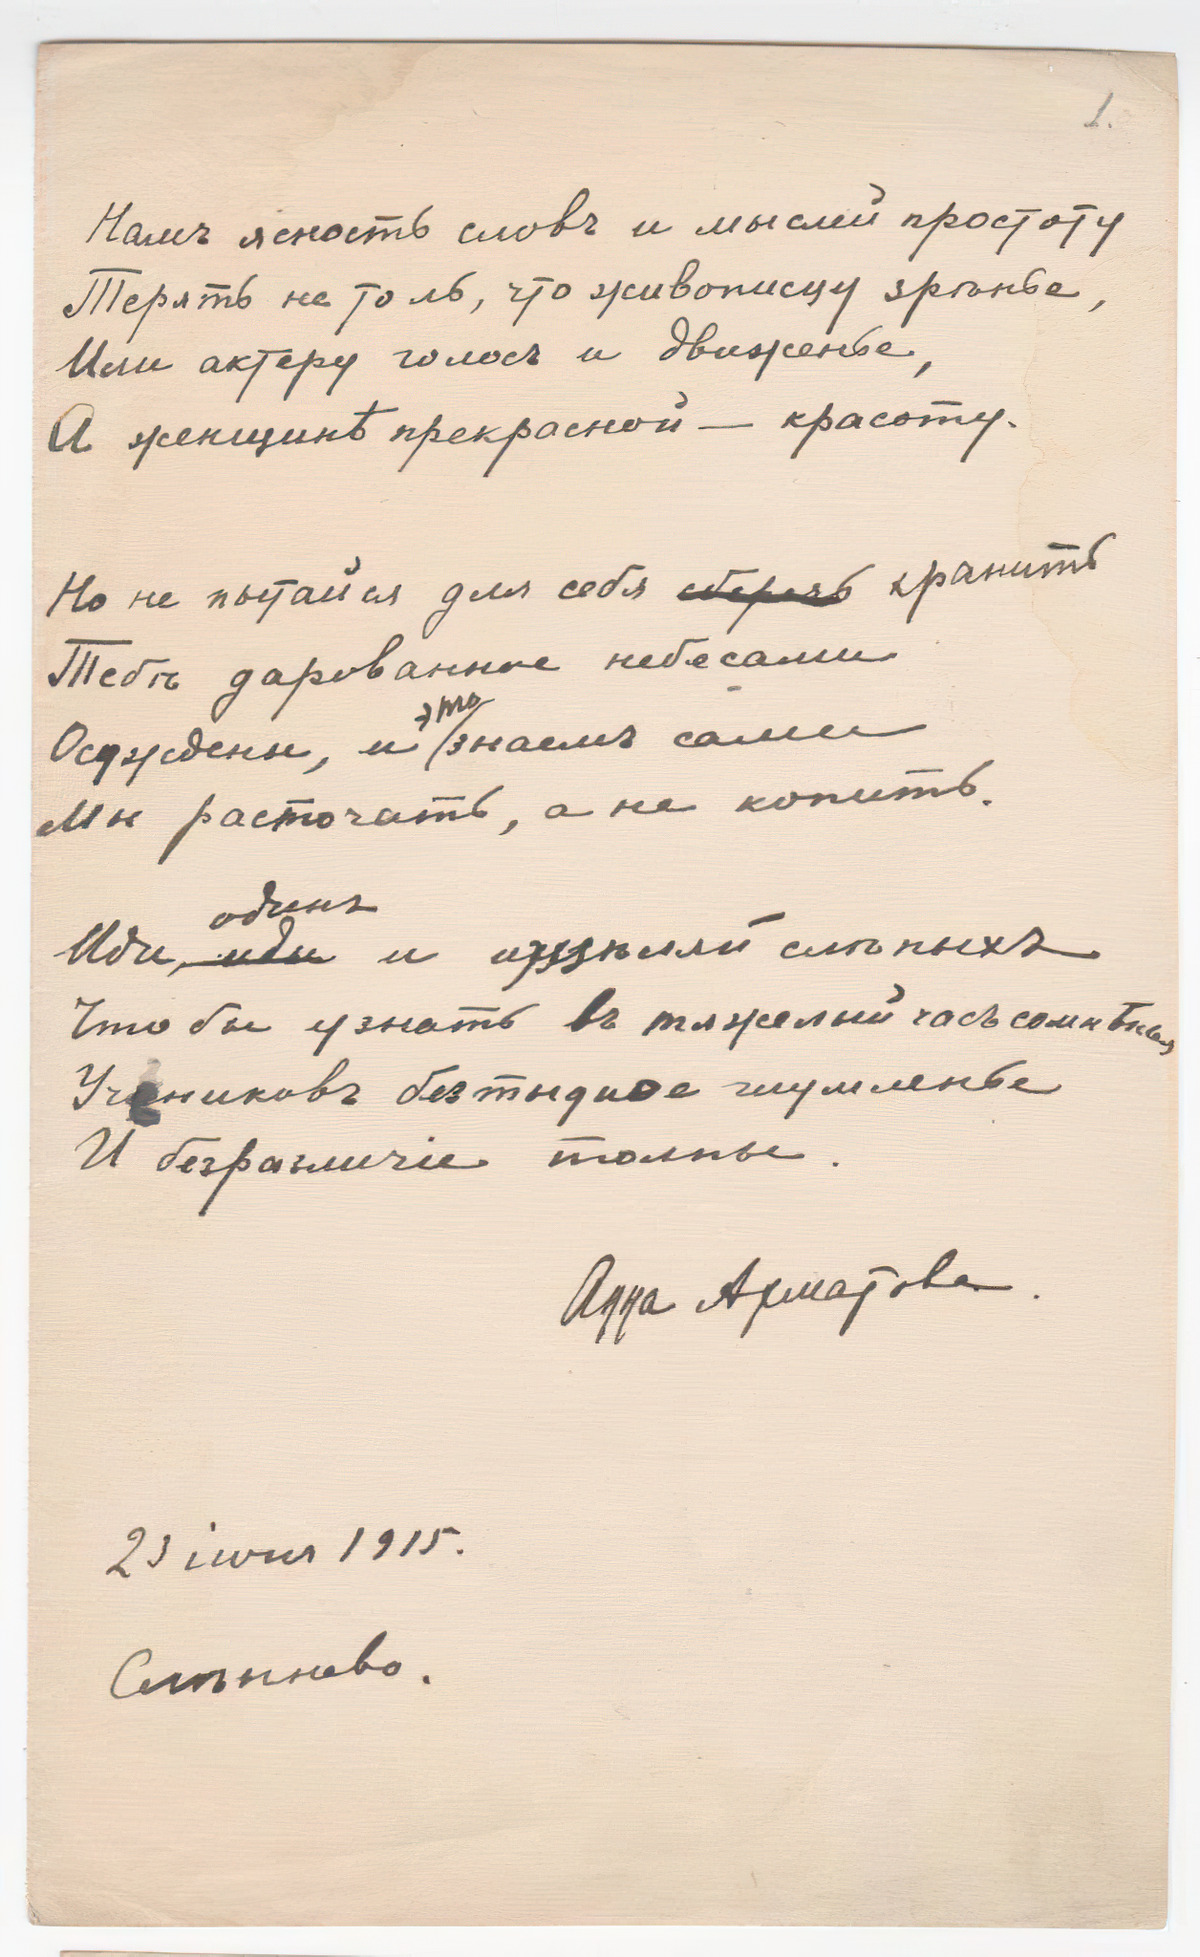 1.
Намъ ясность словъ и мыслей простоту
Терять не то ль, что живописцу зрѣнье,
Или актеру голосъ и движенье,
А женщинѣ прекрасной — красоту.
Но не пытайся для себя сберечь хранить
Тебѣ дарованное небесами
это
Осуждены, и знаемъ сами
Мы расточать, а не копить.
одинъ
Иди, иди и исцѣляй слѣпыхъ
Что бы узнать въ тяжелый часъ сомнѣнья
Учениковъ безтыдное глумленье
И безразличіе толпы.
Анна Ахматова.
23 іюня 1915.
Слѣпнево.